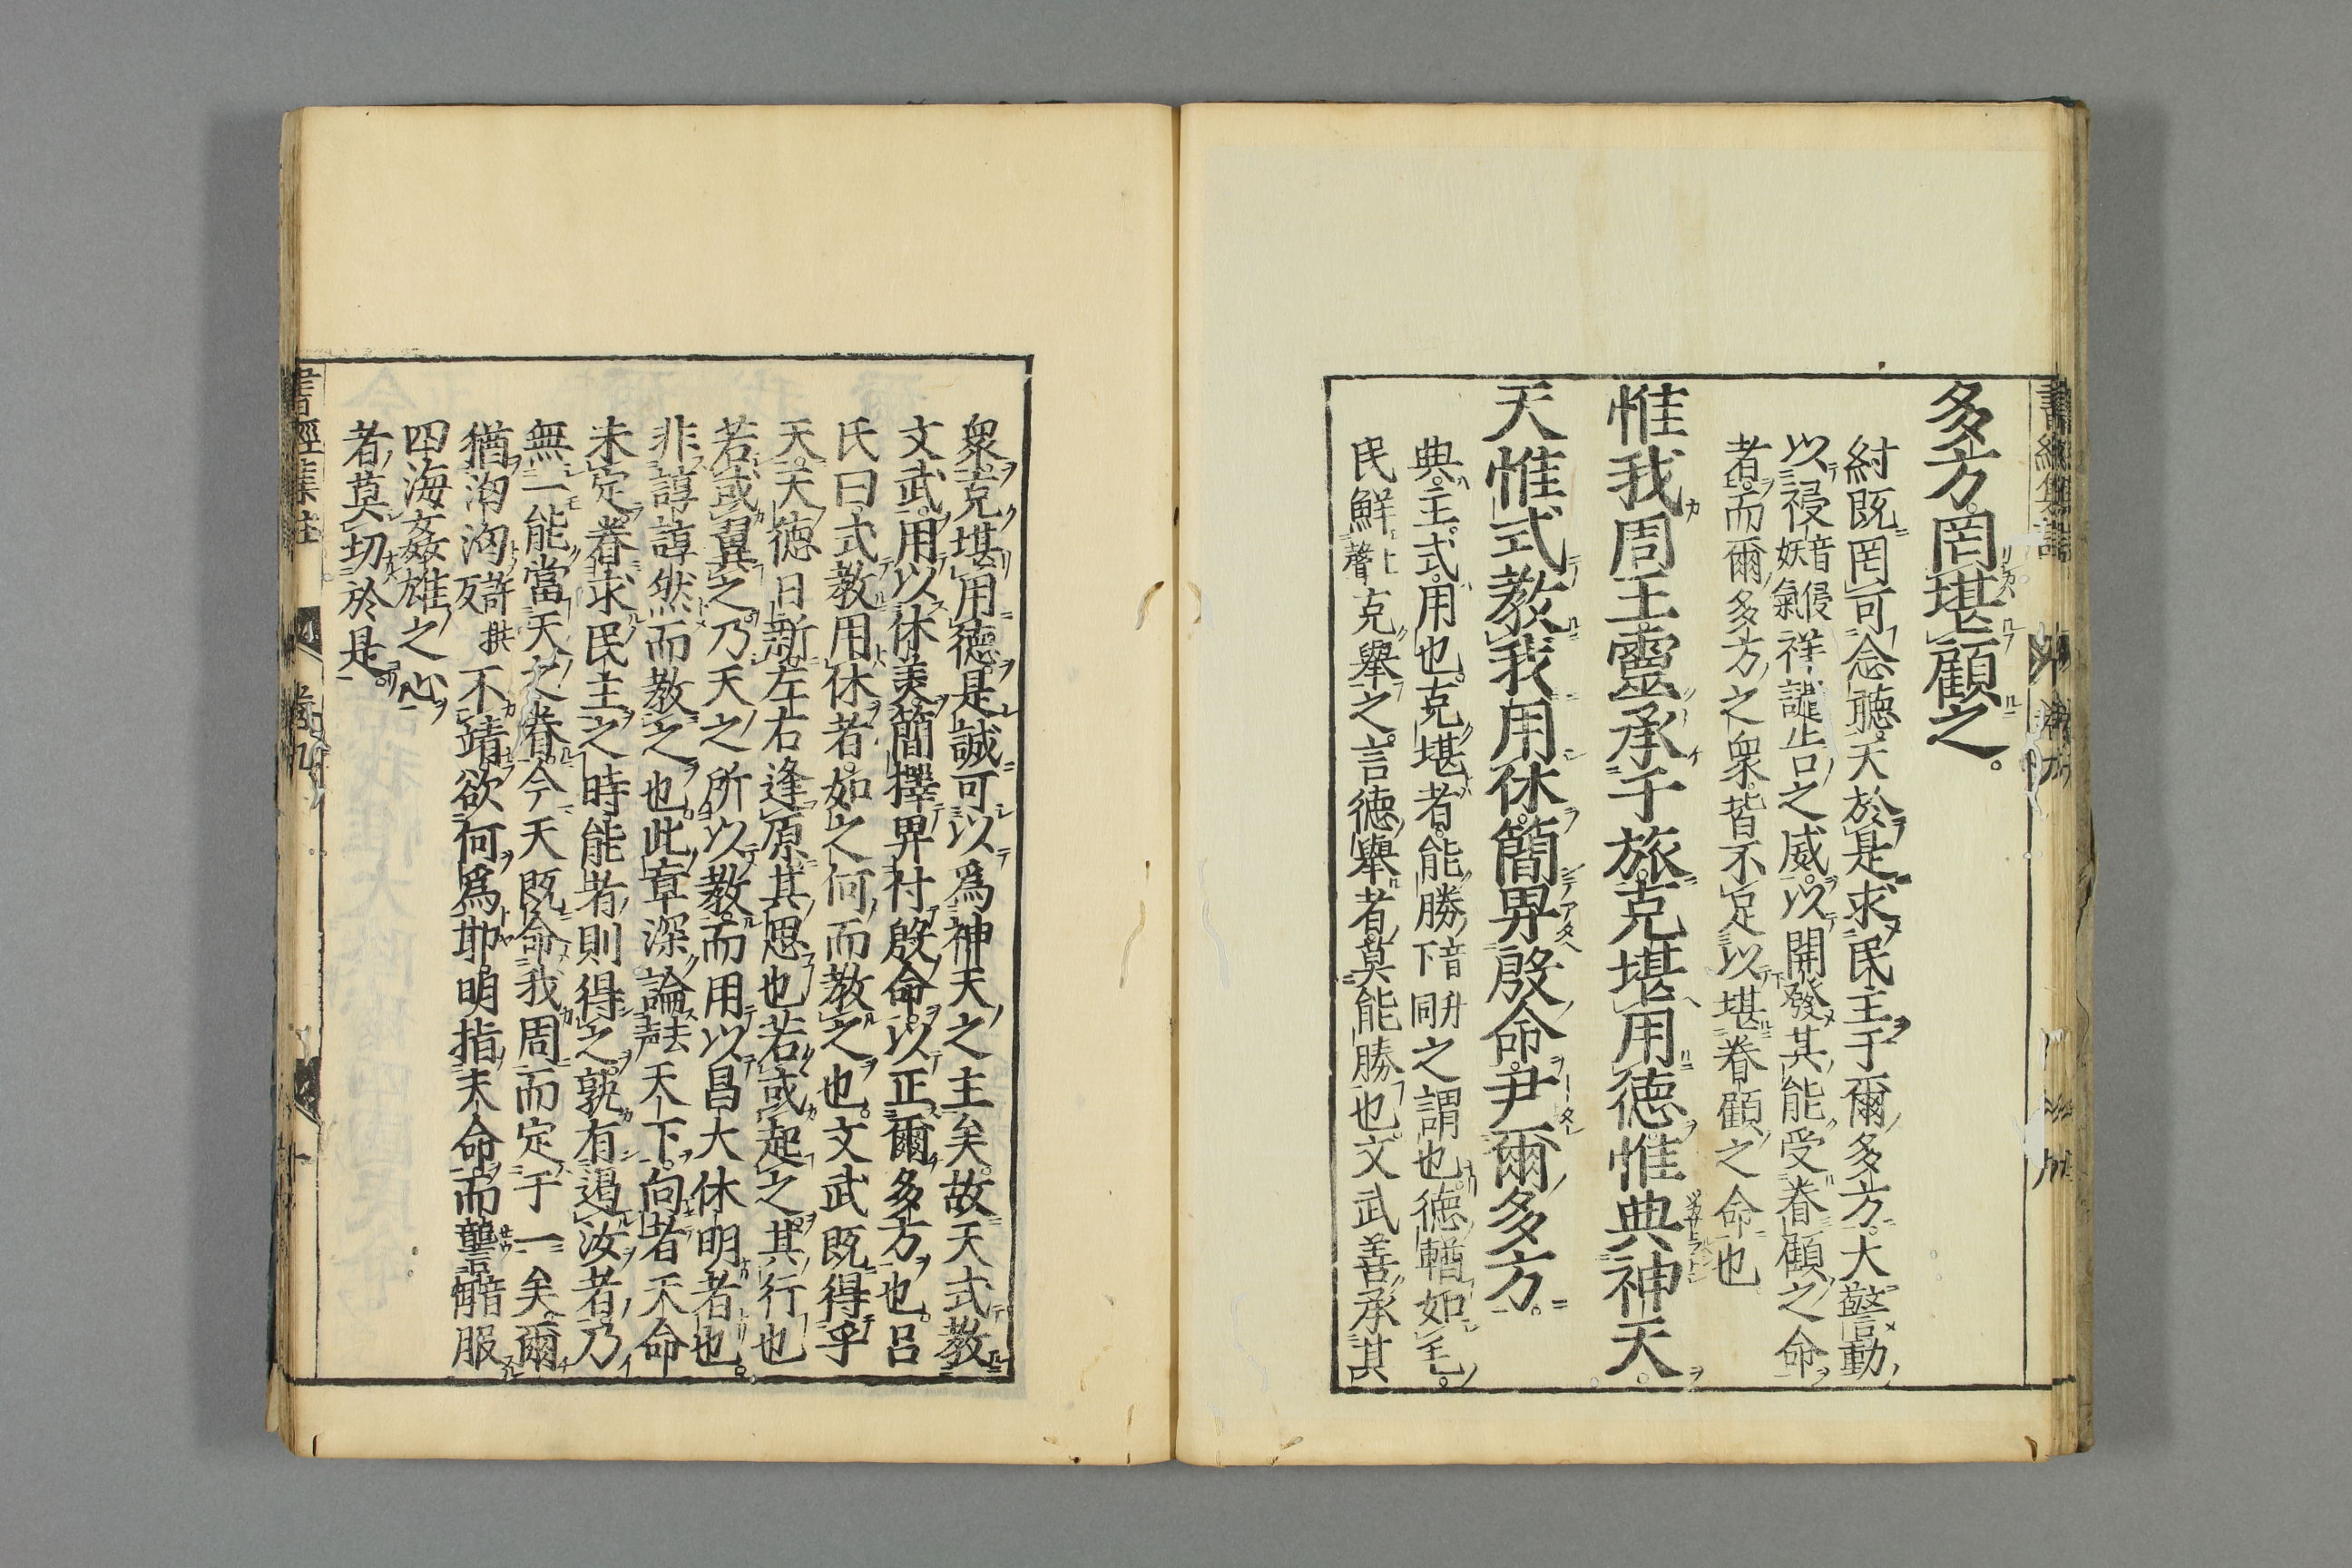 多方。罔堪顧之。
紂既罔可念聽。天於是求民主于爾多方。大警動
以祲音侵妖氣祥譴告之威。以開發其能受眷顧之命
者。而爾多方之衆。皆不足以堪眷顧之命也
惟我周王靈承于旅。克堪用德惟典神天。
天惟式教我用休。簡畀殷命。尹爾多方。
典。主。式。用也。克堪者。能勝音升下同之謂也。德輶如毛。
民鮮上聲克舉之。言德舉者。莫能勝也。文武善承其
衆。克堪用德。是誠可以爲神天之主矣。故天式教
文武。用以休美。簡擇畀付殷命。以正爾多方也。呂
氏曰。式教用休者。如之何而教之也。文武既得乎
天。天德日新。左右逢原。其思也若或起之。其行也
若或翼之。乃天之所以教。而用以昌大休明者也。
非諄諄然而教之也。此章深論去聲天下向者天命
未定。眷求民主之時。能者則得之。孰有遏汝者。乃
無一能當天之眷。今天既命我周。而定于一矣。爾
猶洶洶許拱反不靖。欲何爲耶。明指天命。而讋音懾服
四海姦雄之心
者。莫切於是。
書經集註
卷九